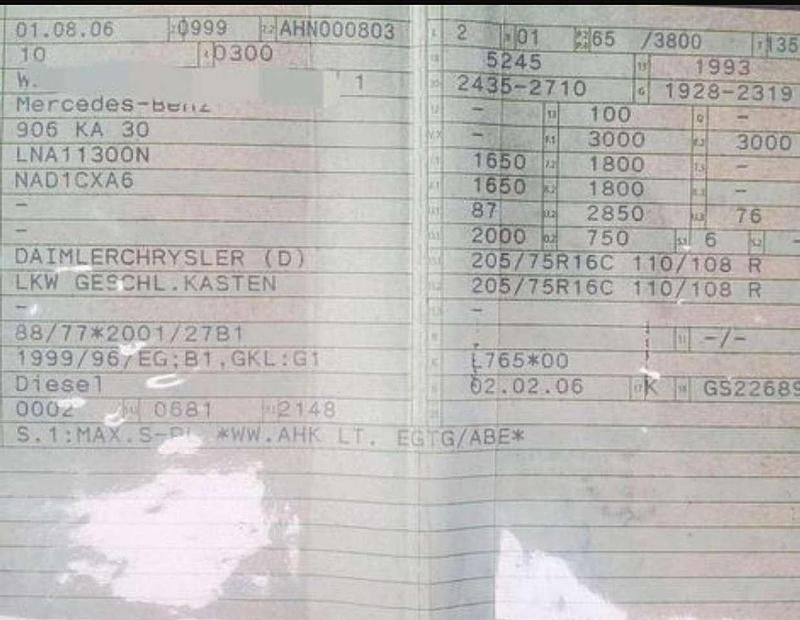 01.08.06 0999 AHN000803
10 0300
W. 1
Mercedes-Benz
906 KA 30
LNA11300N
NAD1CXA6
-
-
DAIMLERCHRYSLER (D)
LKW GESCHL.KASTEN
-
88/77*2001/27B1
1999/96/EG;B1,GKL:G1
Diesel
0002 0681 2148
S.1:MAX.S-PL *WW.AHK LT. EGTG/ABE*
2 01 65 /3800 135
5245 1993
2435-2710 1928-2319
- 100 -
- 3000 3000
1650 1800
1650 1800 -
87 2850 76
2000 750 6 -
205/75R16C 110/108 R
205/75R16C 110/108 R
-
-/-
L765*00
02.02.06 K GS22689